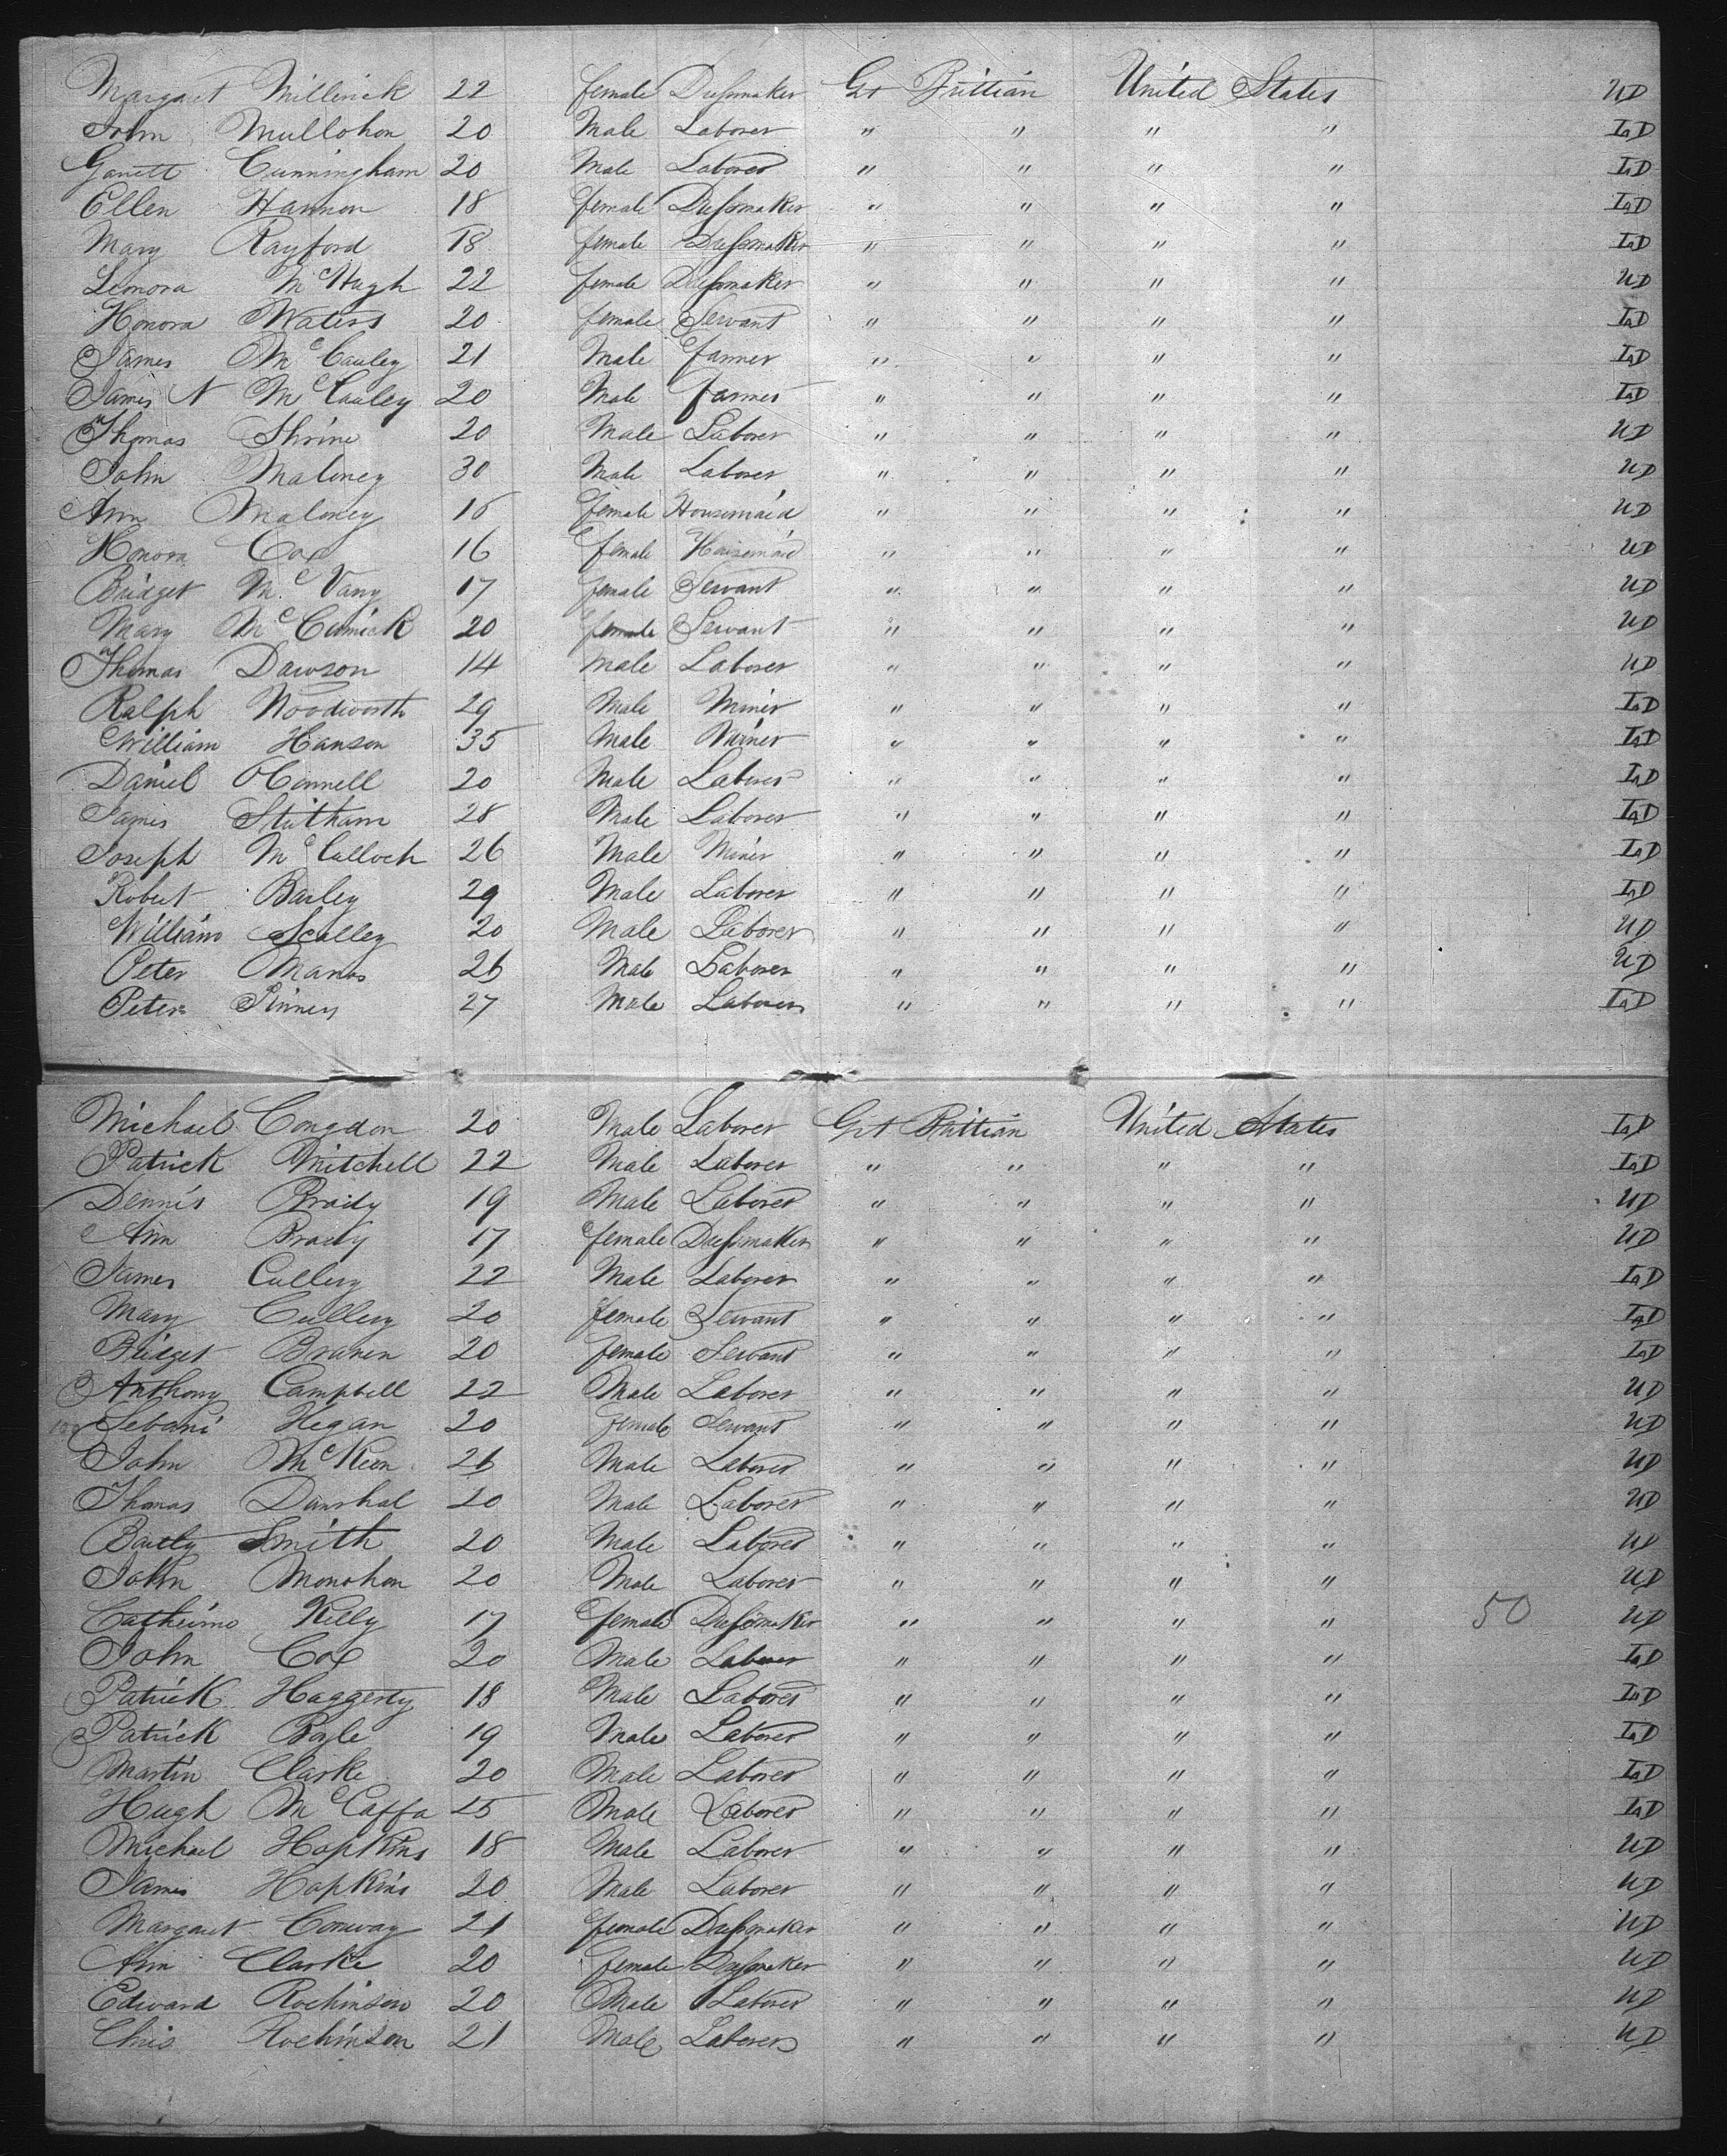 Margaret Millerick 22 female Dressmaker Gt Brittian United States UD
John Mullohon 20 Male Laborer " " " " LD
Garrett Cunningham 20 Male Laborer " " " " LD
Ellen Hannon 18 female Dressmaker " " " " LD
Mary Rayford 18 female Dressmaker " " " " LD
Leonora McHugh 22 female Dressmaker " " " " UD
Honora Waters 20 female Servant " " " " LD
James McCauley 21 Male farmer " " " " LD
James N McCauley 20 Male farmer " " " " LD
Thomas Shrine 20 Male Laborer " " " " UD
John Maloney 30 Male Laborer " " " " UD
Ann Maloney 16 female Housemaid " " " " UD
Honora Cox 16 female Housemaid " " " " UD
Bridget McVany 17 female Servant " " " " UD
Mary McCumick 20 female Servant " " " " UD
Thomas Dawson 14 Male Laborer " " " " UD
Ralph Woodworth 29 Male Miner " " " " LD
William Hanson 35 Male Miner " " " " LD
Daniel OConnell 20 Male Laborer " " " " LD
James Statham 28 Male Laborer " " " " LD
Joseph McCalloch 26 Male Miner " " " " LD
Robert Barley 29 Male Laborer " " " " LD
William Scalley 20 Male Laborer " " " " UD
Peter Manos 26 Male Laborer " " " " UD
Peter Pinney 27 Male Laborer " " " " LD
Michael Congdon 20 Male Laborer Grt Brittian United States LD
Patrick Mitchell 22 Male Laborer " " " " LD
Dennis Brady 19 Male Laborer " " " " UD
Ann Brady 17 female Dressmaker " " " " UD
James Cullery 22 Male Laborer " " " " LD
Mary Cullery 20 female Servant " " " " LD
Bridget Branen 20 female Servant " " " " LD
Anthony Campbell 22 Male Laborer " " " " UD
Hegan 20 female Servant " " " " UD
John McKeon 26 Male Laborer " " " " UD
Thomas Danshal 20 Male Laborer " " " " UD
Bartly Smith 20 Male Laborer " " " " UD
John Monohon 20 Male Laborer " " " " UD
Catherine Kelly 17 female Dressmaker " " " " 50 UD
John Cox 20 Male Laborer " " " " LD
Patrick Haggerty 18 Male Laborer " " " " LD
Patrick Boyle 19 Male Laborer " " " " LD
Martin Clarke 20 Male Laborer " " " " LD
Hugh McCaffa 25 Male Laborer " " " " LD
Michael Hopkins 18 Male Laborer " " " " UD
James Hopkins 20 Male Laborer " " " " UD
Margaret Conway 21 female Dressmaker " " " " UD
Ann Clarke 20 female Dressmaker " " " " UD
Edward Rochinson 20 Male Laborer " " " " UD
Chris Rochinson 21 Male Laborer " " " " UD